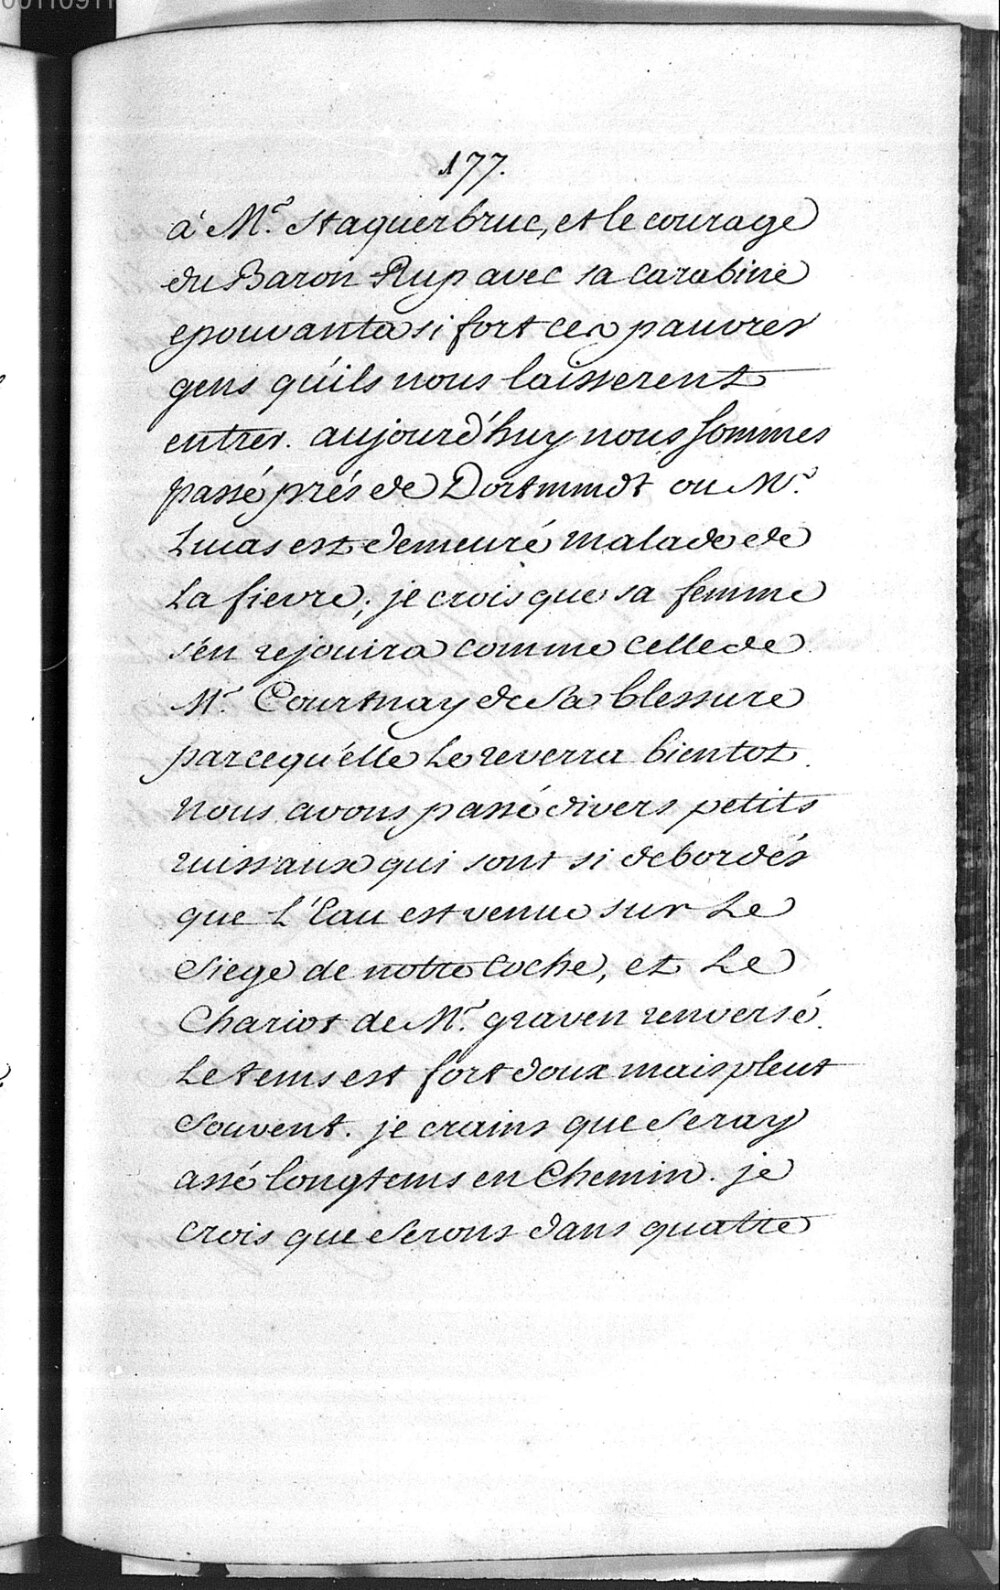 00110911
177.
à Mr. Staquerbruc, et le courage
du Baron Rup avec sa carabine
epouvanta si fort ces pauvres
gens qu'ils nous laisserent
entrer. aujourd'huy nous sommes
passé prés de Dortmundt ou Mr.
Lucas est demeuré malade de
La fievre; je crois que sa femme
s'en rejouira comme celle de
Mr. Courtnay de sa blessure
parcequ'elle Le reverra bientot.
nous avons passé divers petits
ruissaux qui sont si debordés
que L'Eau est venue sur Le
Siege de notre Coche, et Le
Chariot de Mr. graven renversé.
Le tems est fort doux mais pleut
Souvent. je crains que Seray
assé longtems en Chemin. je
crois que Serons dans quatre